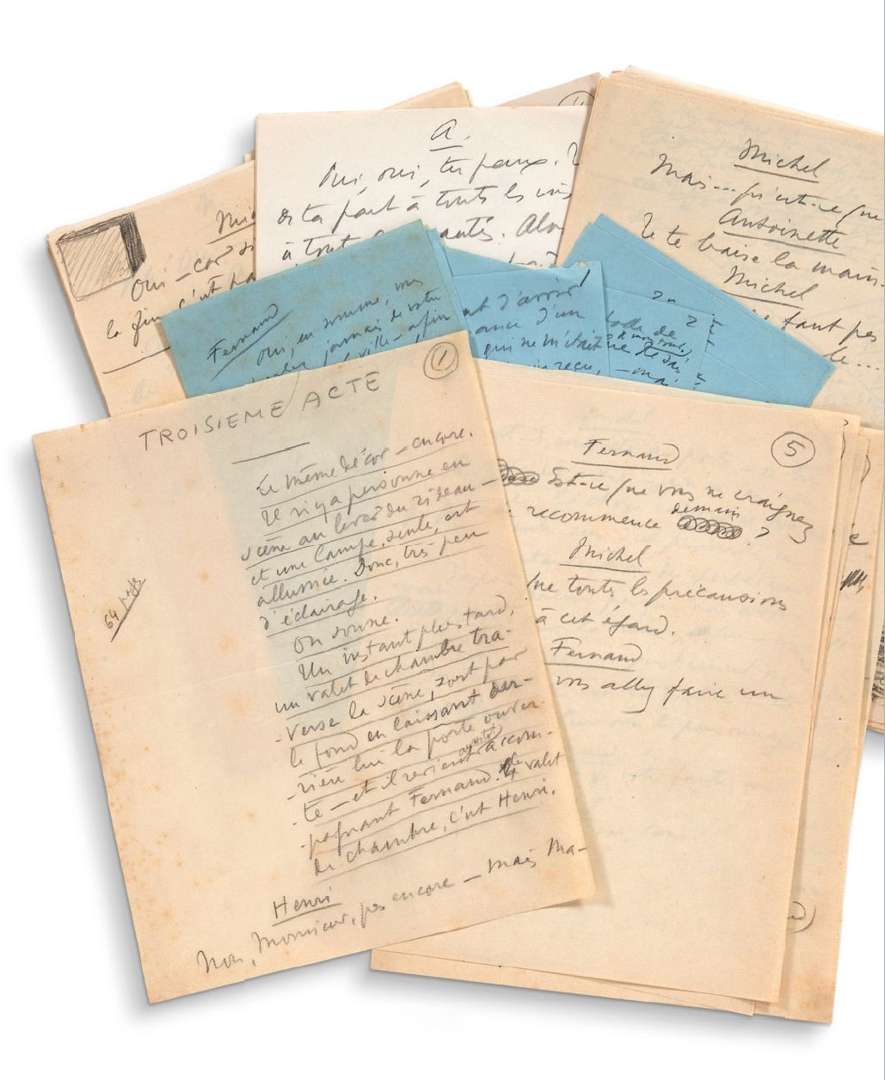 Michel
Mais... qu'est-ce que
Antoinette
Je te baise la main.
Michel
faut pas
A.
Oui, oui, tu peux.
et ta part à toutes les
à tout Alo
Oui – car
la fin, c'est pa
Fernand
Oui, en somme,
jamais de votre
ville – afin
d'avoir
ance d'un
qui ne m'était
salle de
TROISIEME ACTE
1
64 pages
Le même décor – encore.
Il n'y a personne en
scène au lever du rideau –
et une lampe, seule, est
allumée. Donc, très peu
d'éclairage.
On sonne.
Un instant plus tard,
un valet de chambre tra-
-verse la scène, sort par
le fond en laissant der-
-rière lui la porte ouver-
-te – et il revient aussitôt accom-
-pagnant Fernand. Le valet
de chambre, c'est Henri.
Henri
Non, Monsieur, pas encore – mais Ma-
5
Fernand
Est-ce que vous ne craignez
recommence demain ?
Michel
que toutes les précautions
à cet égard.
Fernand
vous allez faire un